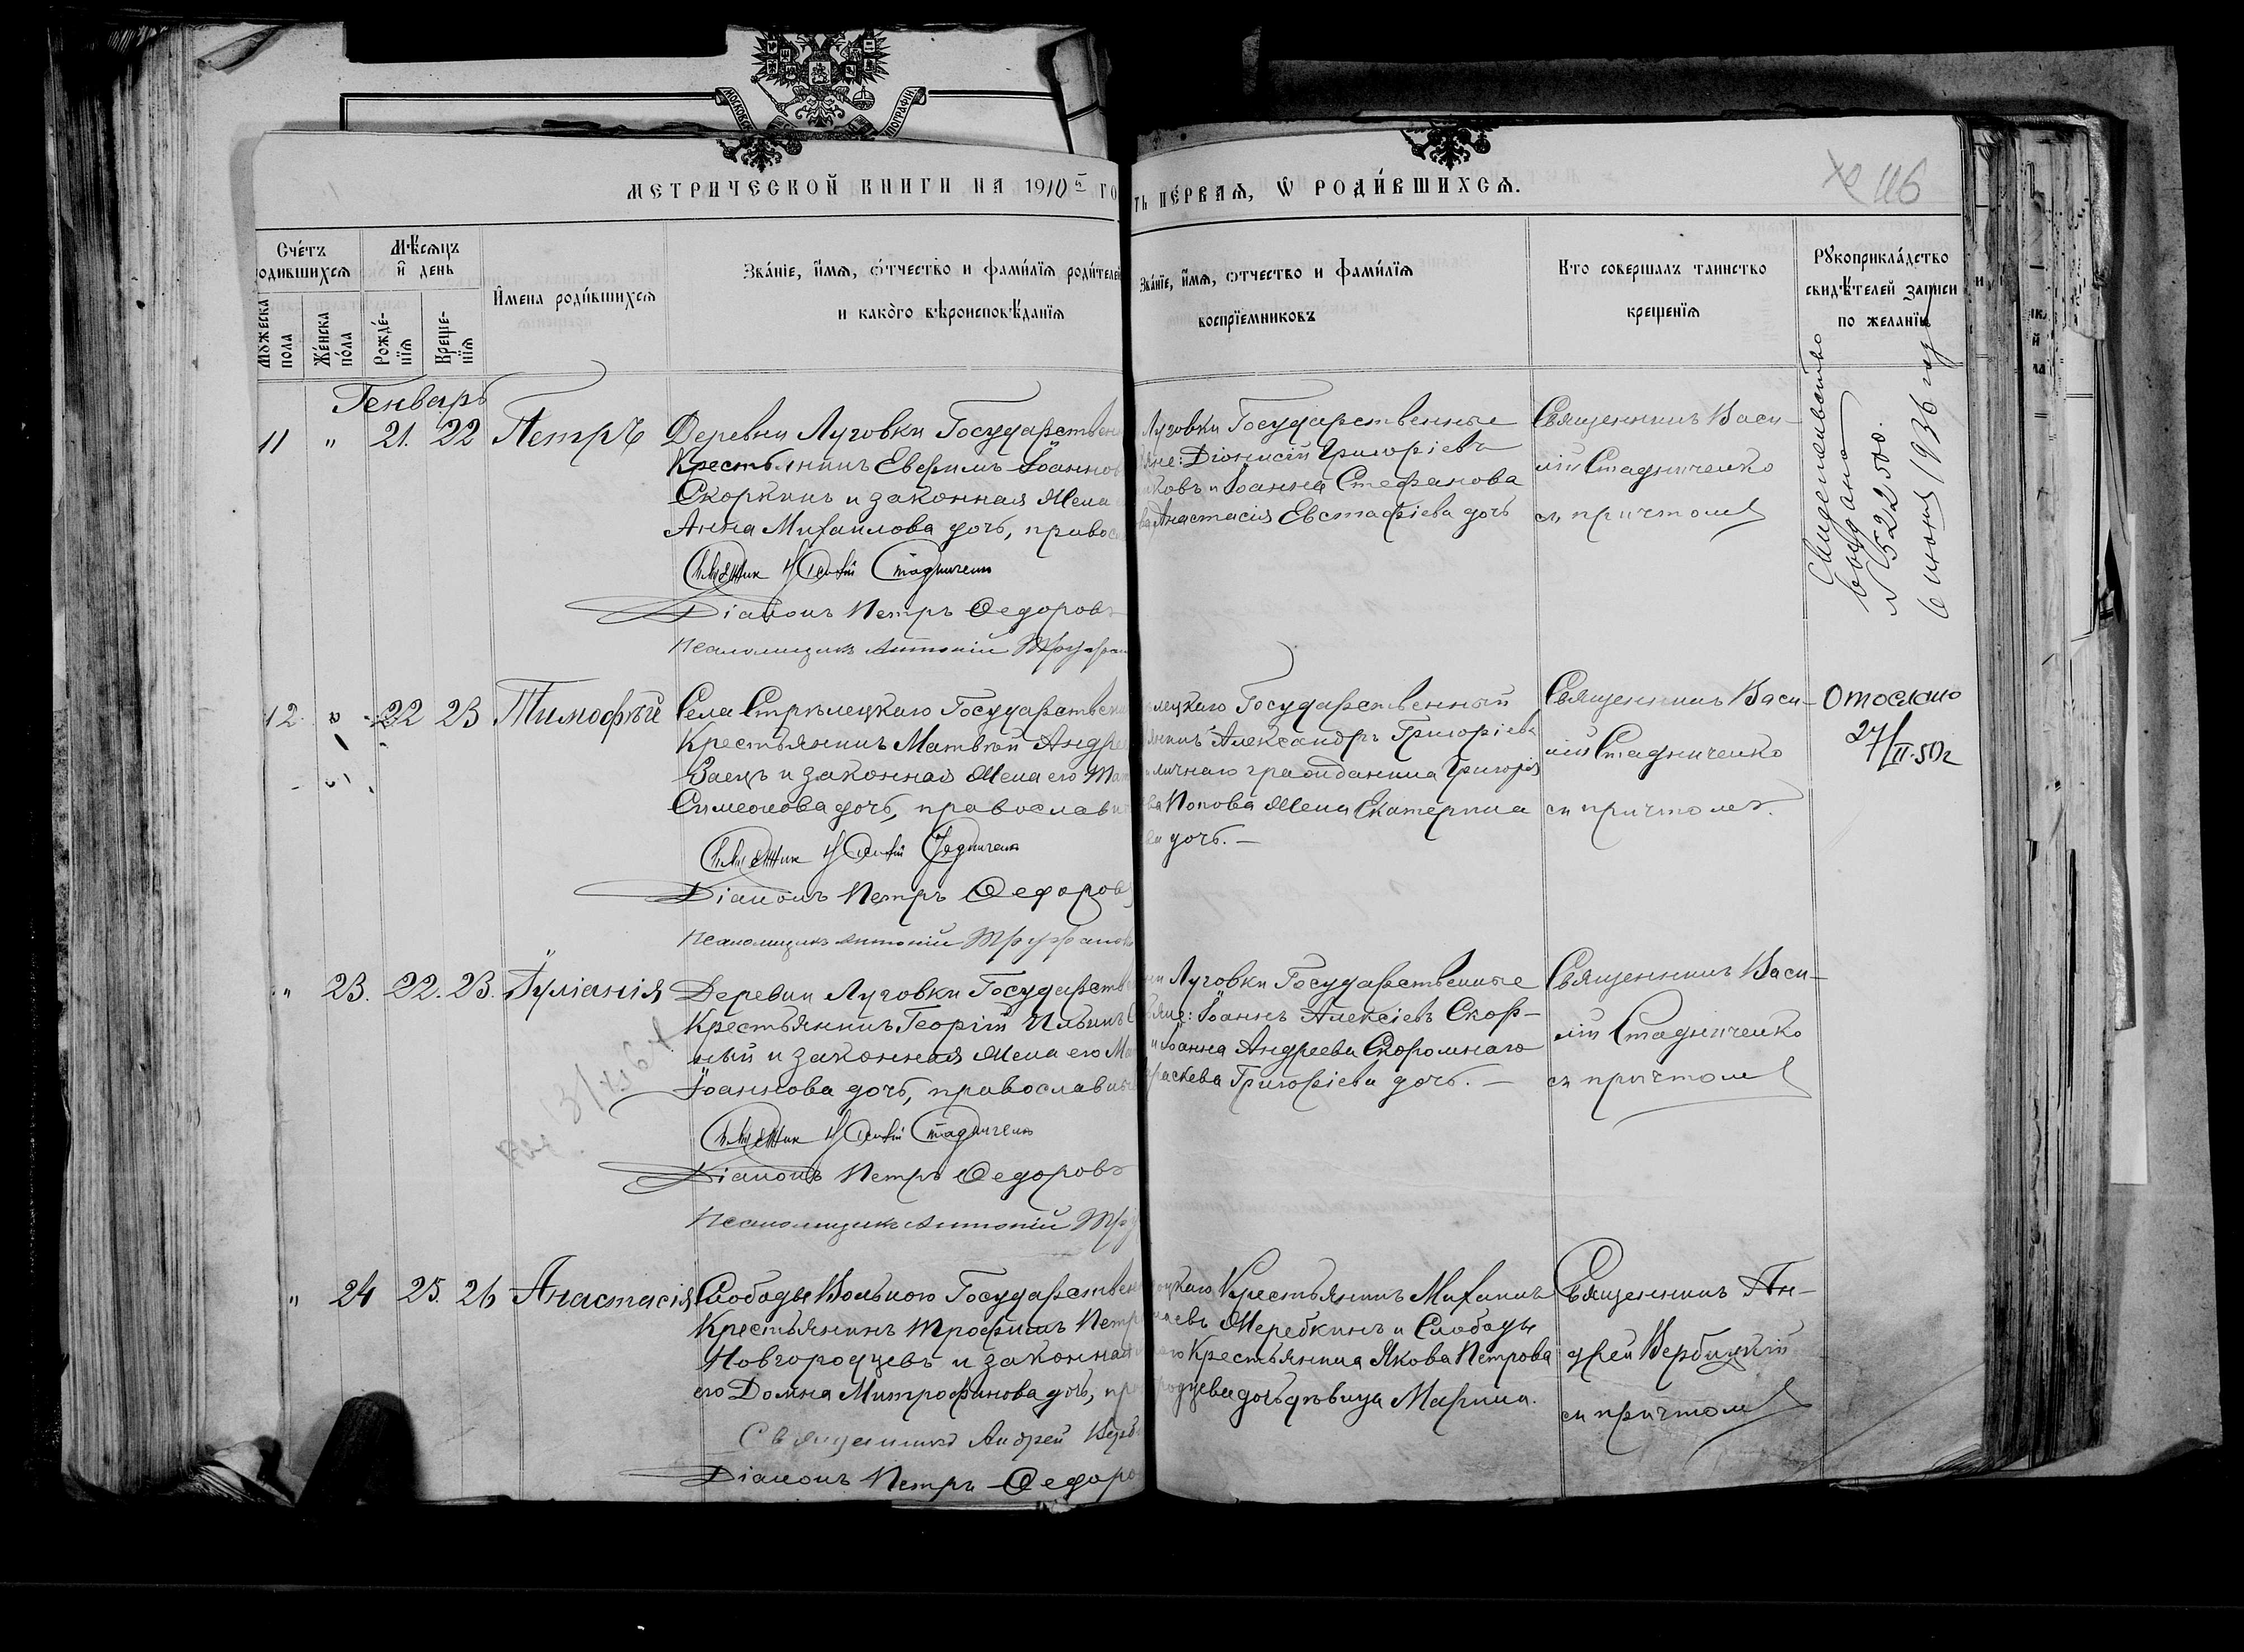 МЕТРИЧЕСКОЙ КНИГИ НА 1910 й ГО
ТЬ ПЕРВАЯ, Ѡ РОДИВШИХСЯ.
116
Счетъ
одившихся
Мѣсяцъ
и день
Мужеска
пола
Женска
пола
Рожде-
нія
Креще-
нія
Имена родившихся
Званіе, имя, отчество и фамилія родителе
и какого вѣроисповѣданія
Званіе, имя, отчество и фамилія
воспріемниковъ
Кто совершалъ таинство
крещенія
Рукоприкладство
свидѣтелей записи
по желанію
Генварь
11 " 21. 22 Петръ
Деревни Луговки Государствен
Крестьянинъ Евфимъ Іоаннов
Скоркинъ и законная жена
Анна Михаилова дочь, правос
Діаконъ Петръ Ѳедоровъ
Псаломщикъ Антоній Труфан
Луговки Государственные
яне: Діонисій Григоріевъ
ковъ и Іоанна Стефанова
Анастасія Евстафіева дочь
Священникъ Васи-
лій Стадниченко
съ причтомъ
Свидетельство
выдано
N 522500.
6 июня 1936 год
12. " 22 23 Тимофѣй
Села Стрѣлецкаго Государствени
Крестьянинъ Матвѣй Андре
Заецъ и законная жена его Тат
Симеонова дочь, православн
Діаконъ Петръ Ѳедоровъ
Псаломщикъ Антоній Труфанов
лецкаго Государственный
янинъ Александръ Григоріевъ
личнаго гражданина Григорія
ва Попова жена Екатерина
ва дочь. —
Священникъ Васи-
лій Стадниченко
съ причтомъ.
Отослано
27/II-50г
" 23. 22. 23. Іуліанія
Деревни Луговки Государств
Крестьянинъ Георгій Ильинъ С
ный и законная жена его Ма
Іоаннова дочь, православны
Діаконъ Петръ Ѳедоровъ
Псаломщикъ Антоній Тру
ни Луговки Государственные
яне: Іоаннъ Алексіевъ Скор-
и Іоанна Андреева Скоромнаго
раскева Григоріева дочь. —
Священникъ Васи-
лій Стадниченко
съ причтомъ
" 24 25. 26 Анастасія
Слободы Вольного Государствен
Крестьянинъ Трофимъ Петр
Новгородцевъ и законная
его Домна Митрофанова дочь, пра
Священникъ Андрей Верб
Діаконъ Петръ Ѳедоро
цкаго Крестьянинъ Михаилъ
аевъ Жеребкинъ и Слободы
го Крестьянина Якова Петрова
родцева дочь дѣвица Марина.
Священникъ Ан-
дрей Вербицкій
съ причтомъ